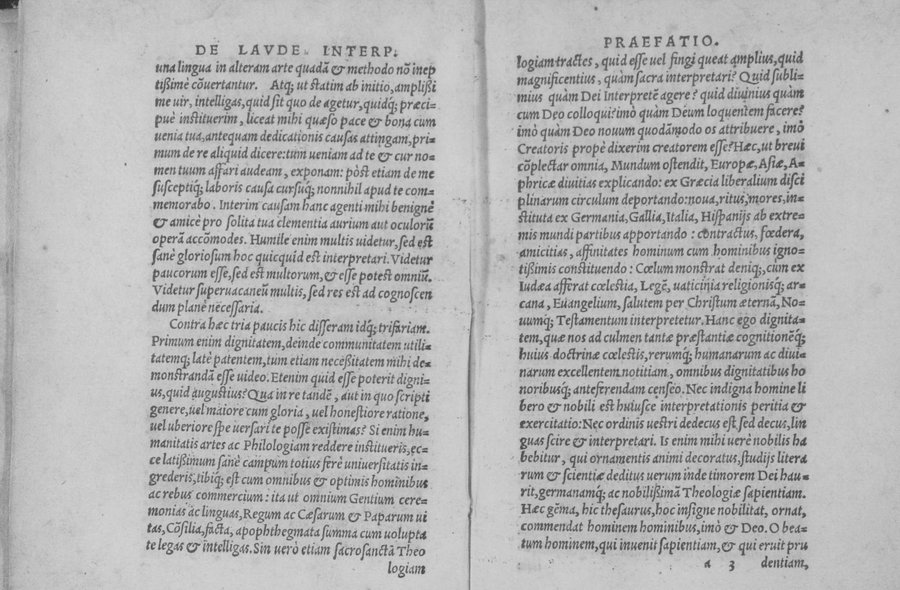 DE LAVDE INTERP.
una lingua in alteram arte quadā & methodo nō inep
tißimè cōuertantur. Atq; ut statim ab initio, amplißi
me uir, intelligas, quid sit quo de agetur, quidq; præci=
puè instituerim, liceat mihi quæso pace & bona cum
uenia tua, antequam dedicationis causas attingam, pri=
mum de re aliquid dicere: tum ueniam ad te & cur no=
men tuum affari audeam, exponam: pòst etiam de me
susceptiq; laboris causa cursuq; nonnihil apud te com=
memorabo. Interim causam hanc agenti mihi benignè
& amicè pro solita tua clementia aurium aut oculorū
operā accōmodes. Humile enim multis uidetur, sed est
sanè gloriosum hoc quicquid est interpretari. Videtur
paucorum esse, sed est multorum, & esse potest omniū.
Videtur superuacaneū multis, sed res est ad cognoscen
dum planè necessaria.
Contra hæc tria paucis hic disseram idq; trifariam.
Primum enim dignitatem, deinde communitatem utili=
tatemq; latè patentem, tum etiam neceßitatem mihi de=
monstrandā esse uideo. Etenim quid esse poterit digni=
us, quid augustius? Qua in re tandē, aut in quo scripti
genere, uel maiore cum gloria, uel honestiore ratione,
uel uberiore spe uersari te posse existimas? Si enim hu=
manitatis artes ac Philologiam reddere institueris, ec=
ce latißimum sanè campum totius ferè uniuersitatis in=
grederis, tibiq; est cum omnibus & optimis hominibus
ac rebus commercium: ita ut omnium Gentium cere=
monias ac linguas, Regum ac Cæsarum & Paparum ui
tas, Cōsilia, facta, apophthegmata summa cum uolupta
te legas & intelligas. Sin uerò etiam sacrosanctā Theo
logiam
PRAEFATIO.
logiam tractes, quid esse uel fingi queat amplius, quid
magnificentius, quàm sacra interpretari? Quid subli=
mius quàm Dei Interpretē agere? quid diuinius quàm
cum Deo colloqui? imò quàm Deum loquentem facere?
imò quàm Deo nouum quodāmodo os attribuere, imò
Creatoris propè dixerim creatorem esse? Hæc, ut breui
cōplectar omnia, Mundum ostendit, Europæ, Asiæ, A=
phricæ diuitias explicando: ex Græcia liberalium disci
plinarum circulum deportando: noua, ritus, mores, in=
stituta ex Germania, Gallia, Italia, Hispanijs ab extre=
mis mundi partibus apportando: contractus, fœdera,
amicitias, affinitates hominum cum hominibus igno=
tißimis constituendo: Cœlum monstrat deniq;, cum ex
Iudæa afferat cœlestia, Legē, uaticinia religionisq; ar=
cana, Euangelium, salutem per Christum æternā, No=
uumq; Testamentum interpretetur. Hanc ego dignita=
tem, quæ nos ad culmen tantæ præstantiæ cognitionēq;
huius doctrinæ cœlestis, rerumq; humanarum ac diui=
narum excellentem notitiam, omnibus dignitatibus ho
noribusq; anteferendam censeo. Nec indigna homine li
bero & nobili est huiusce interpretationis peritia &
exercitatio: Nec ordinis uestri dedecus est sed decus, lin
guas scire & interpretari. Is enim mihi uerè nobilis ha
bebitur, qui ornamentis animi decoratus, studijs litera
rum & scientiæ deditus uerum inde timorem Dei hau=
rit, germanamq; ac nobilißimā Theologiæ sapientiam.
Hæc gēma, hic thesaurus, hoc insigne nobilitat, ornat,
commendat hominem hominibus, imò & Deo. O bea=
tum hominem, qui inuenit sapientiam, & qui eruit pru
a 3 dentiam,